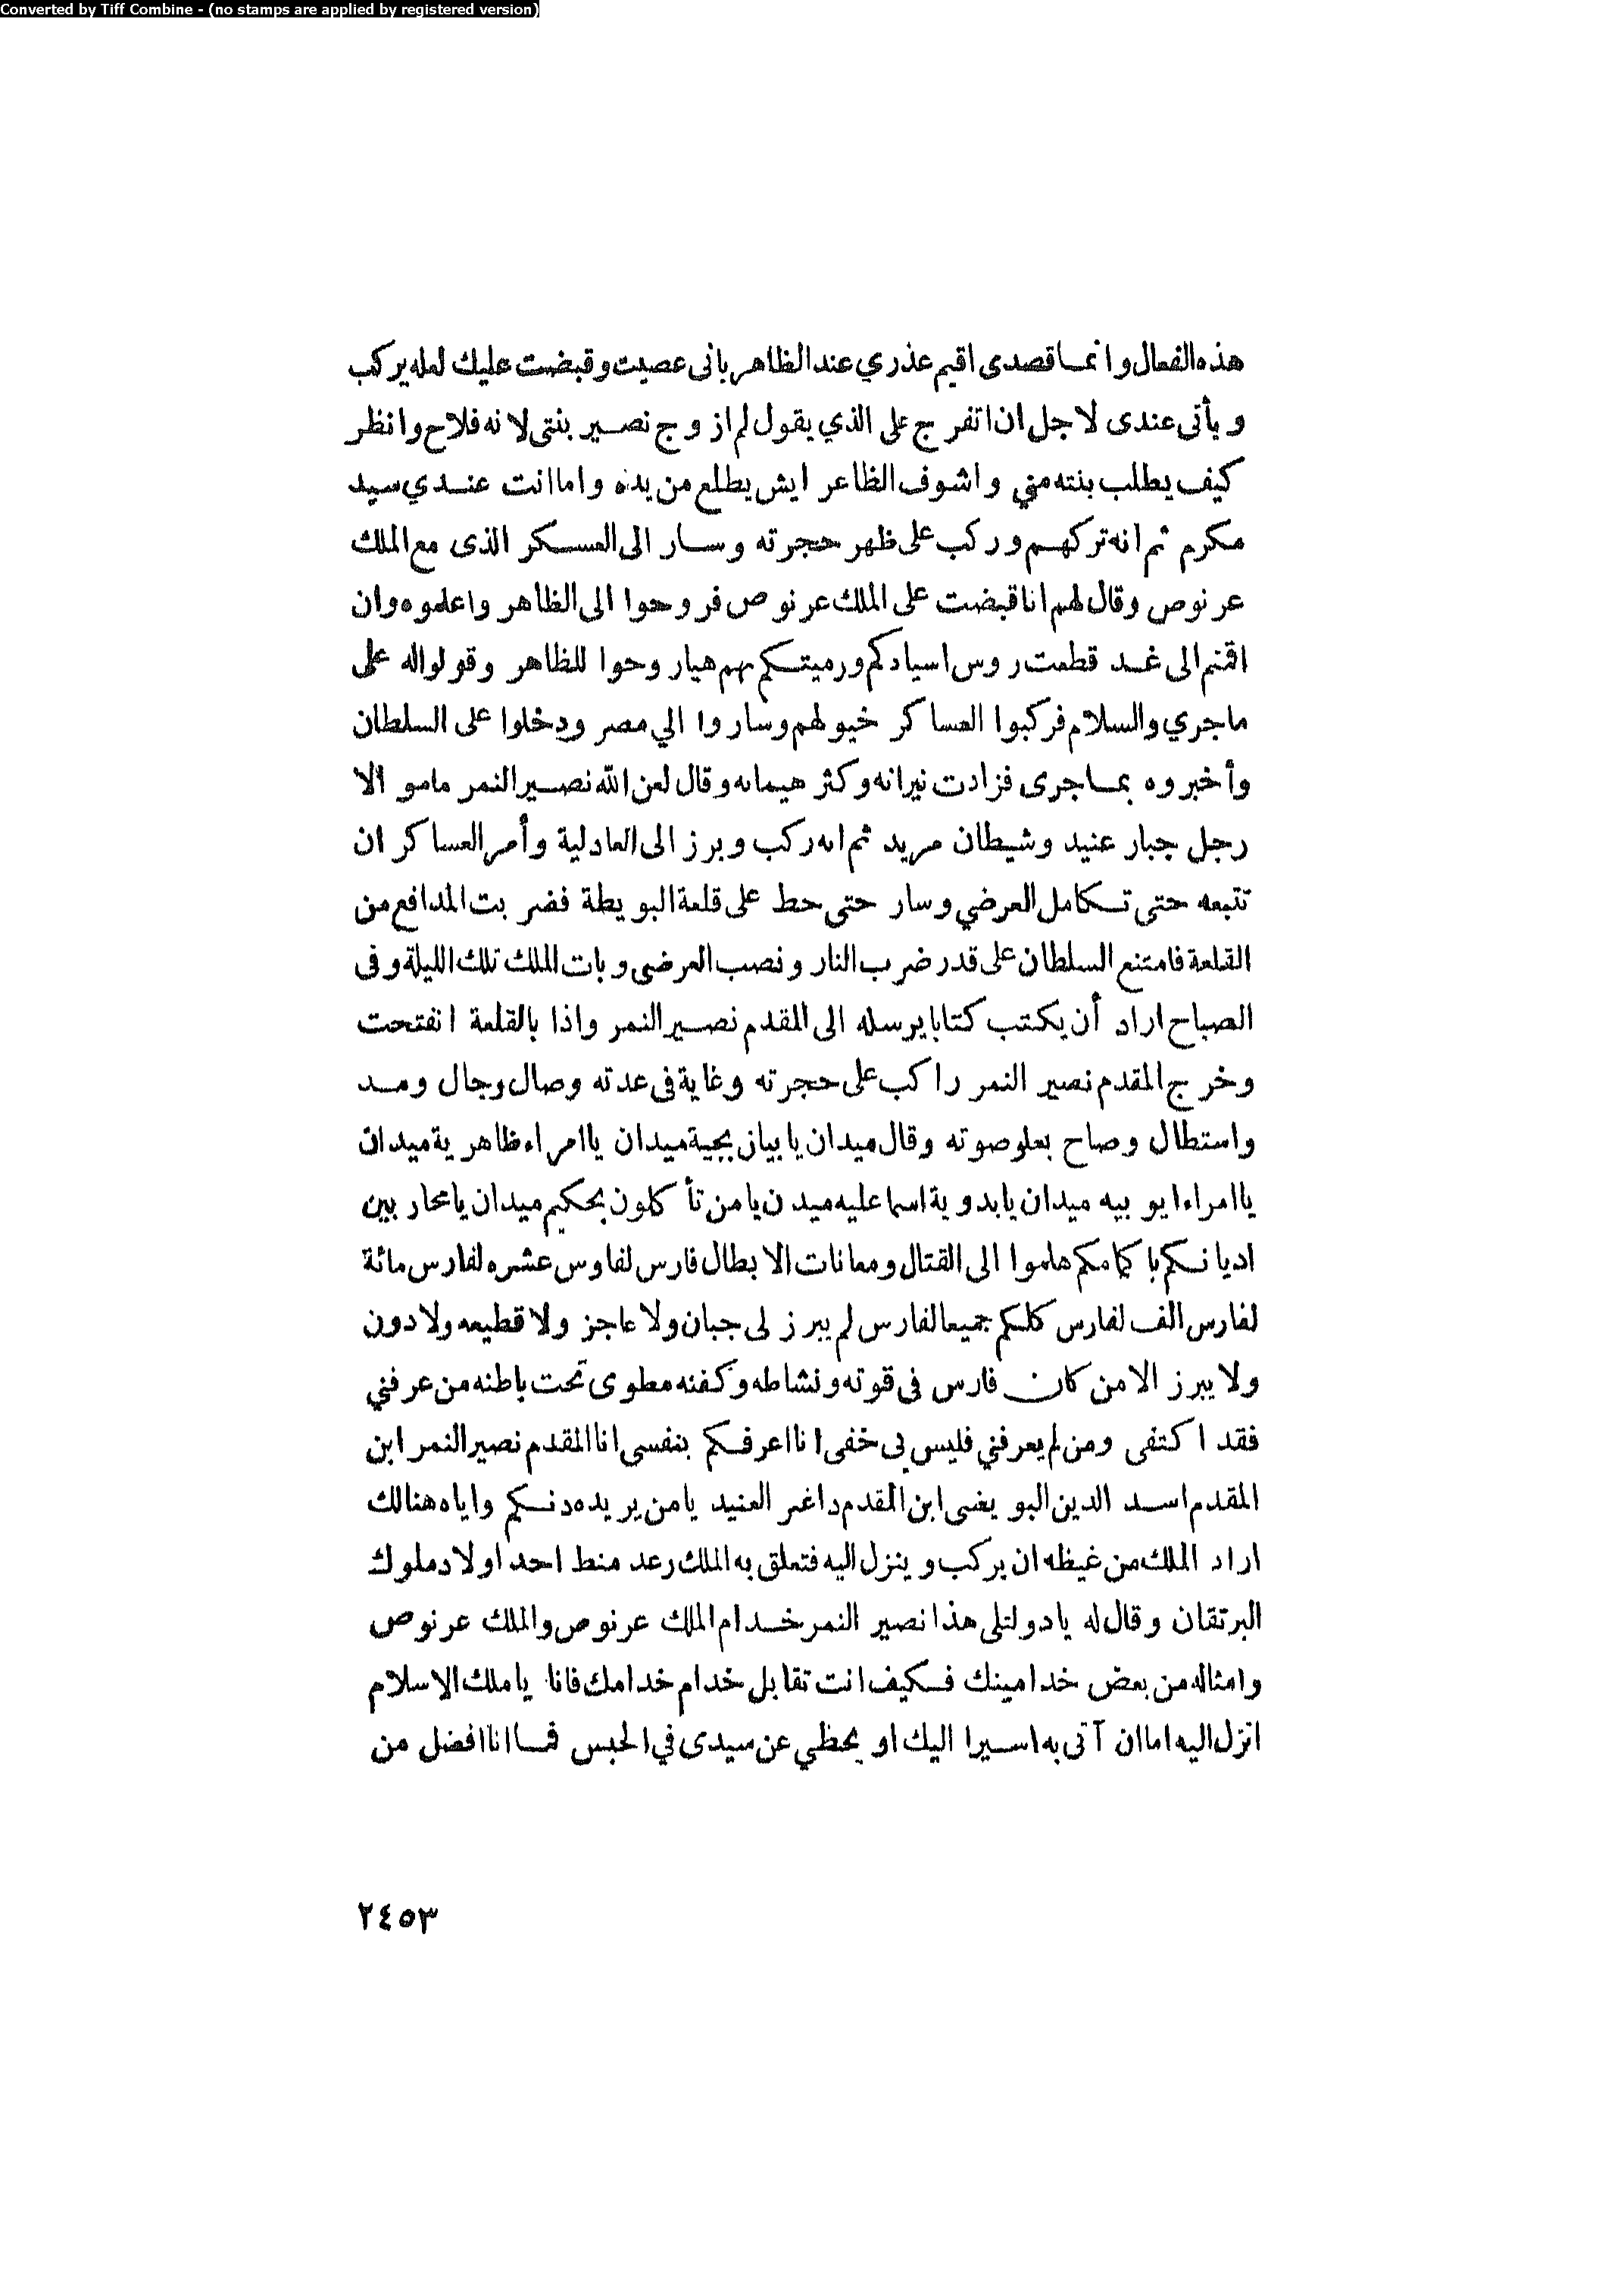 Converted by Tiff Combine - (no stamps are applied by registered version)
هذه الفعال وانما قصدى اقيم عذري عند الظاهر بانى عصيت وقبضت عليك لعله يركب
ويأتى عندى لاجل ان اتفرج على الذي يقول لم ازوج نصير بنتى لانه فلاح وانظر
كيف يطلب بنته مني واشوف الظاعر ايش يطلع من يده واما انت عندي سيد
مكرم ثم انه تركهم وركب على ظهر حجرته وسار الى العسكر الذى مع الملك
عرنوص وقال لهم انا قبضت على الملك عرنوص فروحوا الى الظاهر واعلموه وان
اقمتم الى غد قطعت روس اسيادكم ورميتكم بهم هيا روحوا للظاهر وقولوا له على
ماجري والسلام فركبوا العساكر خيولهم وساروا الي مصر ودخلوا على السلطان
وأخبروه بما جرى فزادت نيرانه وكثر هيمانه وقال لعن الله نصير النمر ماهو الا
رجل جبار عنيد وشيطان مريد ثم انه ركب وبرز الى العادلية وأمر العساكر ان
تتبعه حتى تكامل العرضي وسار حتى حط على قلعة البويطة فضربت المدافع من
القلعة فامتنع السلطان على قدر ضرب النار ونصب العرضى وبات الملك تلك الليلة وفى
الصباح اراد أن يكتب كتابا يرسله الى المقدم نصير النمر واذا بالقلعة انفتحت
وخرج المقدم نصير النمر راكب على حجرته وغاية فى عدته وصال وجال ومد
واستطال وصاح بعلو صوته وقال ميدان يا بيازبجية ميدان يا امراء ظاهرية ميدان
يا امراء ايوبيه ميدان يا بدوية اسماعليه ميدن يا من تأكلون بحكيم ميدان يا محار بين
اديانكم با كمامكم هلموا الى القتال ومعانات الابطال فارس لفاوس عشره لفارس مائة
لفارس الف لفارس كلكم جميعا لفارس لم يبرز لى جبان ولا عاجز ولا قطيعه ولا دون
ولا يبرز الا من كان فارس فى قوته ونشاطه وكفنه مطوى تحت باطنه من عرفني
فقد اكتفى ومن لم يعرفني فليس بى خفى انا اعرفكم بنفسى انا المقدم نصير النمر ابن
المقدم اسد الدين البويضى ابن المقدم داغر العنيد يا من يريده دنكم واياه هنالك
اراد الملك من غيظه ان يركب وينزل اليه فتعلق به الملك رعد منط احد اولاد ملوك
البرتقان وقال له يادولتلى هذا نصير النمر خدام الملك عرنوص والملك عرنوص
وامثاله من بعض خدامينك فكيف انت تقابل خدام خدامك فانا ياملك الاسلام
انزل اليه اما ان آتى به اسيرا اليك او يحظي عن سيدى في الحبس فما انا افضل من
٢٤٥٣